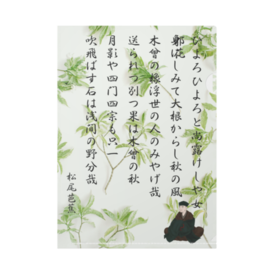 ひよろひよろと尚露けしや女
郎花しみて大根からし秋の風
木曾の橡浮世の人のみやげ哉
送られつ別つ果は木曾の秋
月影や四門四宗も只一
吹飛ばす石は浅間の野分哉
松尾芭蕉